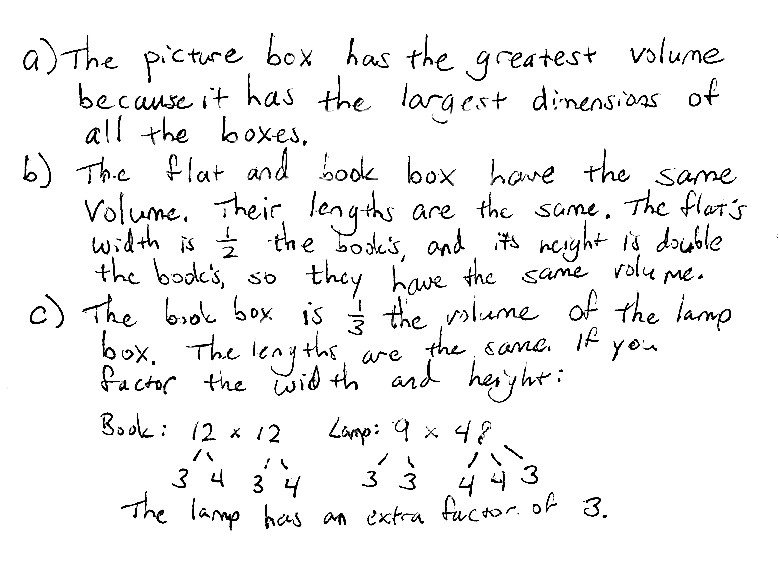 a) The picture box has the greatest volume
because it has the largest dimensions of
all the boxes.
b) The flat and book box have the same
volume. Their lengths are the same. The flat's
width is 1/2 the book's, and its height is double
the book's, so they have the same volume.
c) The book box is 1/3 the volume of the lamp
box. The lengths are the same. If you
factor the width and height:
Book: 12 x 12 Lamp: 9 x 48
3 4 3 4 3 3 4 4 3
The lamp has an extra factor of 3.